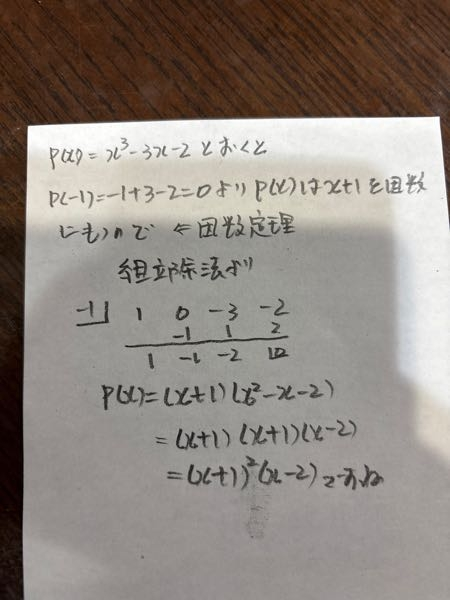 P(x)=x³-3x-2 とおくと
P(-1)=-1+3-2=0より P(x)はx+1を因数
にもつので ⇐ 因数定理
組立除法より
-1| 1 0 -3 -2
-1 1 2
1 -1 -2 |0
P(x)=(x+1)(x²-x-2)
=(x+1)(x+1)(x-2)
=(x+1)²(x-2)ですね